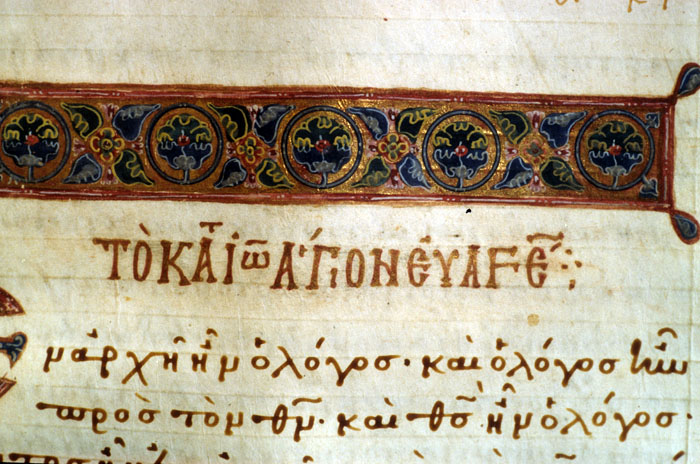 ΤὸΚΑΤΙω̅ΑΓΙΟΝΕΥΑΓΓΕ̅
ν ἀρχῆ ἦν ὁ λόγος· καὶ ὁ λόγος ἦν
πρὸς τὸν θν̅· καὶ θς̅ ἦν ὁ λόγος·